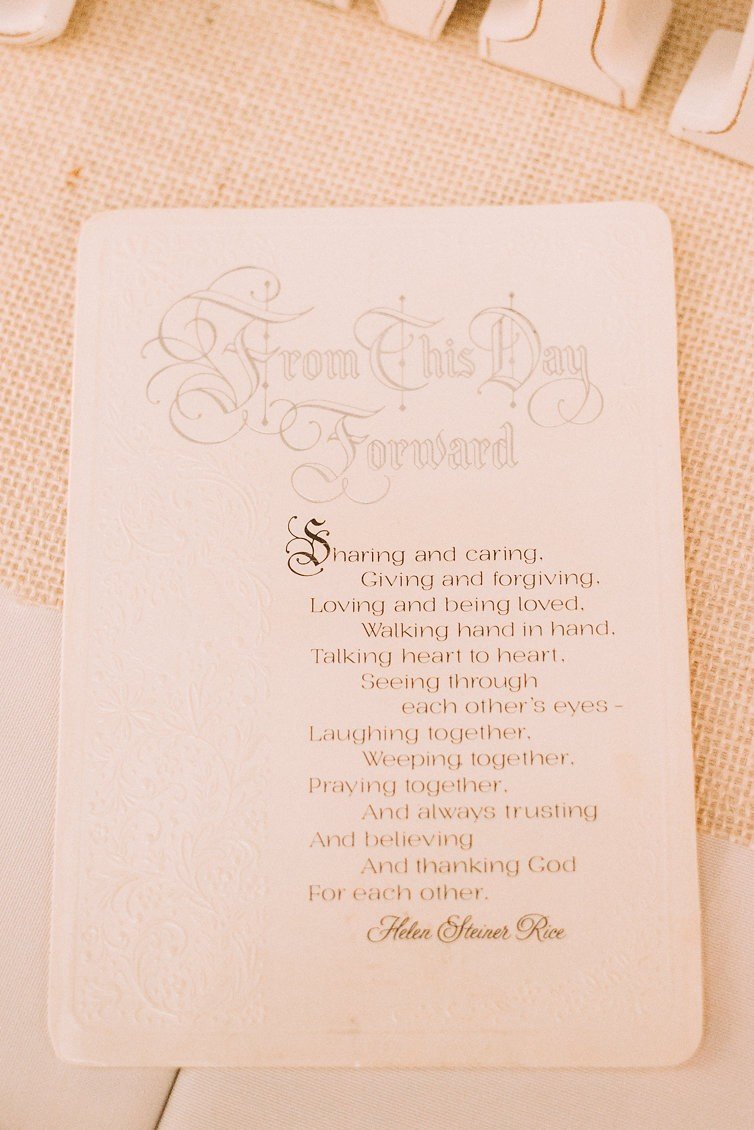 From This Day
Forward
Sharing and caring,
Giving and forgiving,
Loving and being loved,
Walking hand in hand,
Talking heart to heart,
Seeing through
each other's eyes -
Laughing together,
Weeping together,
Praying together,
And always trusting
And believing
And thanking God
For each other.
Helen Steiner Rice